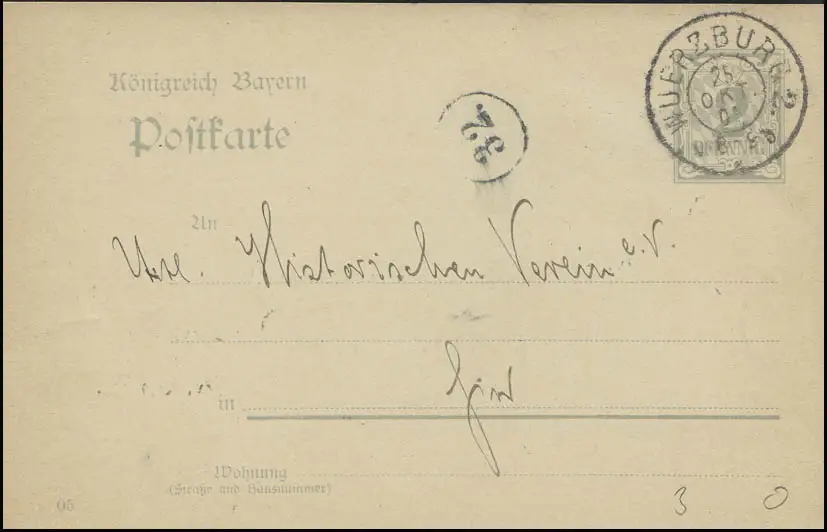 Königreich Bayern
Postkarte
WUERZBURG 2
25
OKT
PFENNIG
32
An
Historischen Verein e.V.
in
Hier
Wohnung
(Straße und Hausnummer)
05
3 0